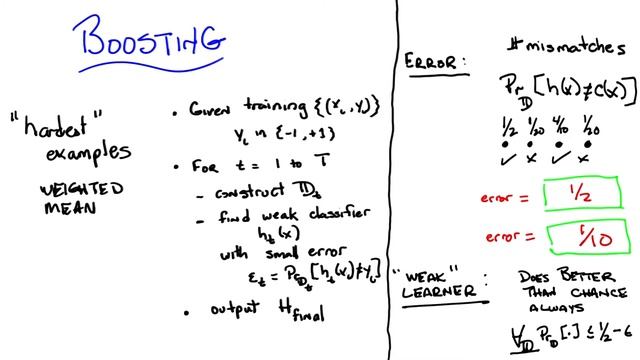 BOOSTING
"hardest"
examples
WEIGHTED
MEAN
• Given training {(xᵢ, yᵢ)}
yᵢ in {-1, +1}
• For t = 1 to T
- construct Dₜ
- find weak classifier
hₜ(x)
with small error
εₜ = Pr_Dₜ[hₜ(xᵢ)≠yᵢ]
• output H_final
ERROR:
# mismatches
Pr_D[h(x)≠c(x)]
1/2 1/20 4/10 1/20
• • • •
✓ x ✓ x
error = 1/2
error = 1/10
"WEAK"
LEARNER:
DOES BETTER
THAN CHANCE
ALWAYS
∀_D Pr_D[·] ≤ 1/2 - ε